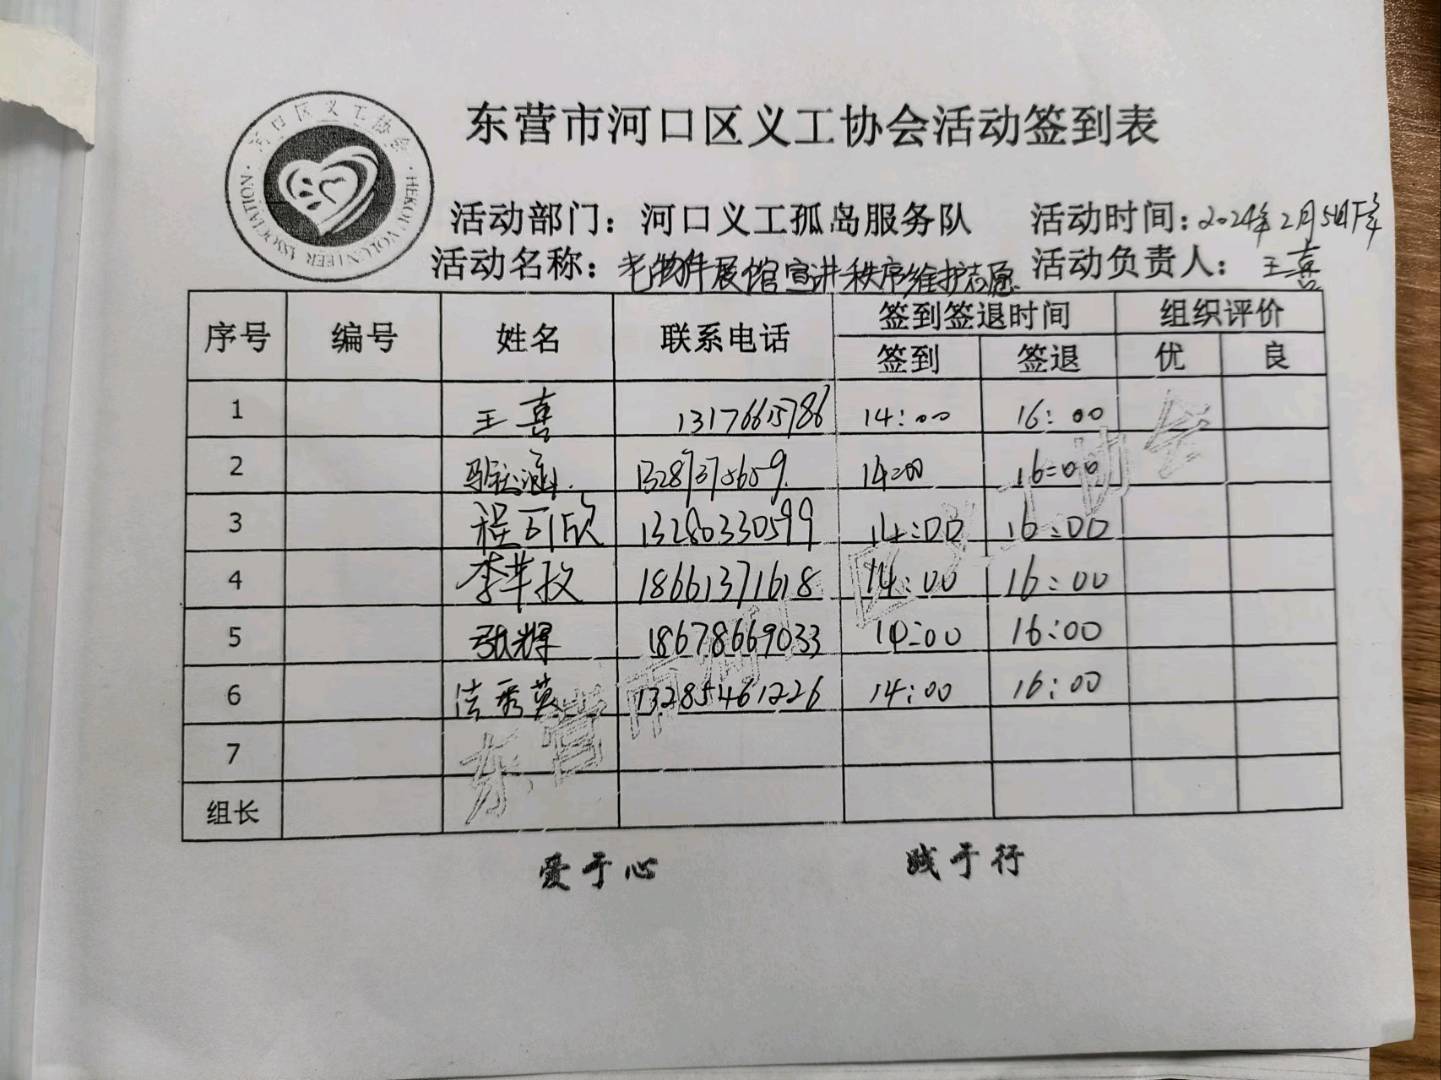 河口区义工协会
HEKOU VOLUNTEER ASSOCIATION
东营市河口区义工协会活动签到表
活动部门：河口义工孤岛服务队 活动时间：2024年2月5日下午
活动名称：老物件展馆宣讲秩序维护志愿 活动负责人：王喜
序号 编号 姓名 联系电话 签到签退时间 组织评价
签到 签退 优 良
1 王喜 13176615786 14:00 16:00
2 涵 13287375659 14:00 16:00
3 程可欣 13280330599 14:00 16:00
4 李苹 18661371618 14:00 16:00
5 张辉 18678669033 14:00 16:00
6 法秀英 13285461226 14:00 16:00
7
组长
东营市河口区义工协会
爱于心 践于行